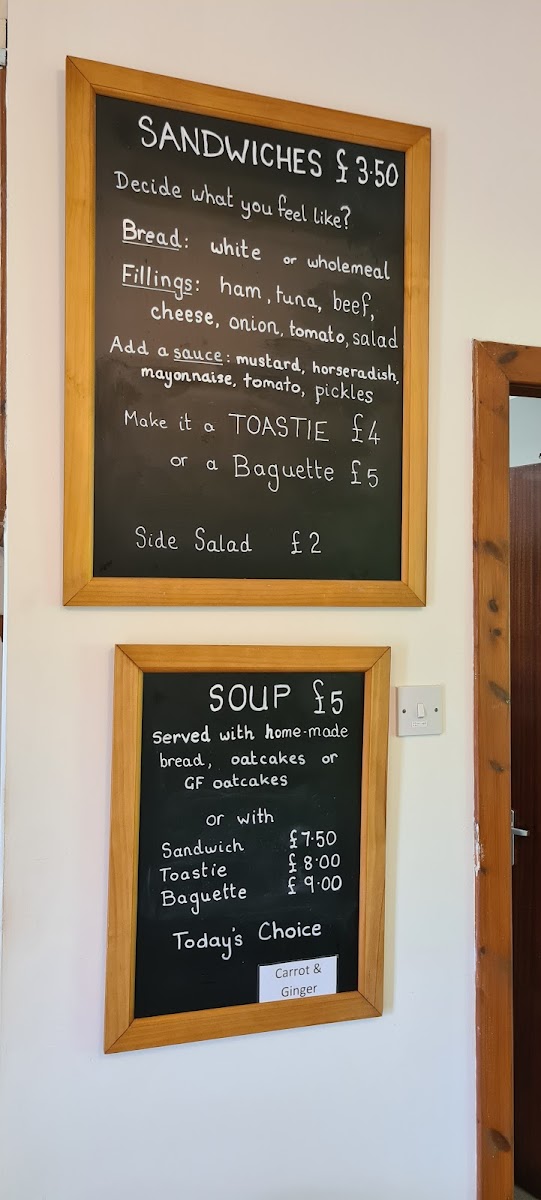 SANDWICHES £3.50
Decide what you feel like?
Bread: white or wholemeal
Fillings: ham, tuna, beef,
cheese, onion, tomato, salad
Add a sauce: mustard, horseradish,
mayonnaise, tomato, pickles
Make it a TOASTIE £4
or a Baguette £5
Side Salad £2
SOUP £5
served with home-made
bread, oatcakes or
GF oatcakes
or with
Sandwich £7.50
Toastie £8.00
Baguette £9.00
Today's Choice
Carrot &
Ginger